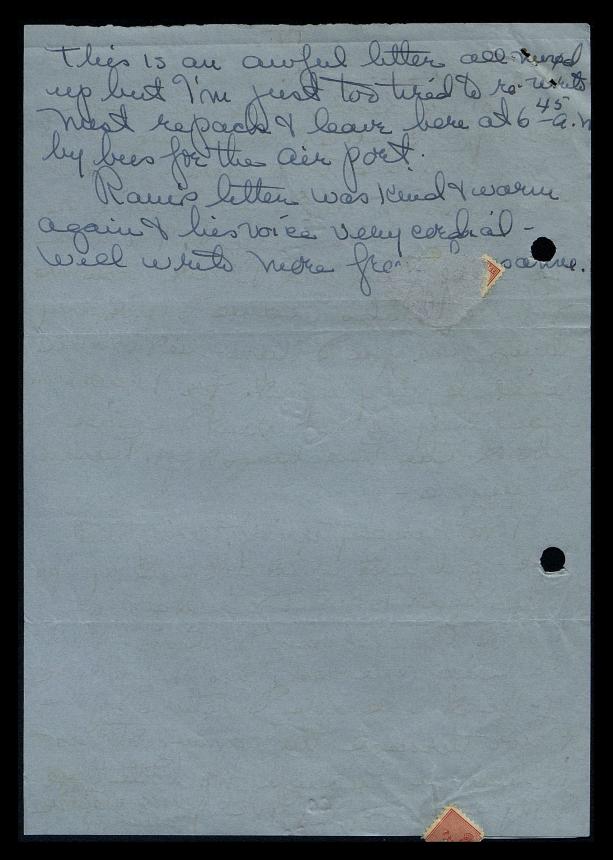 This is an awful letter all mixed
up but I'm just too tired to re-write
Must repack & leave here at 6 45 a.m
by bus for the air port.
letter was kind & warm
again & his voice very cordial -
will write more